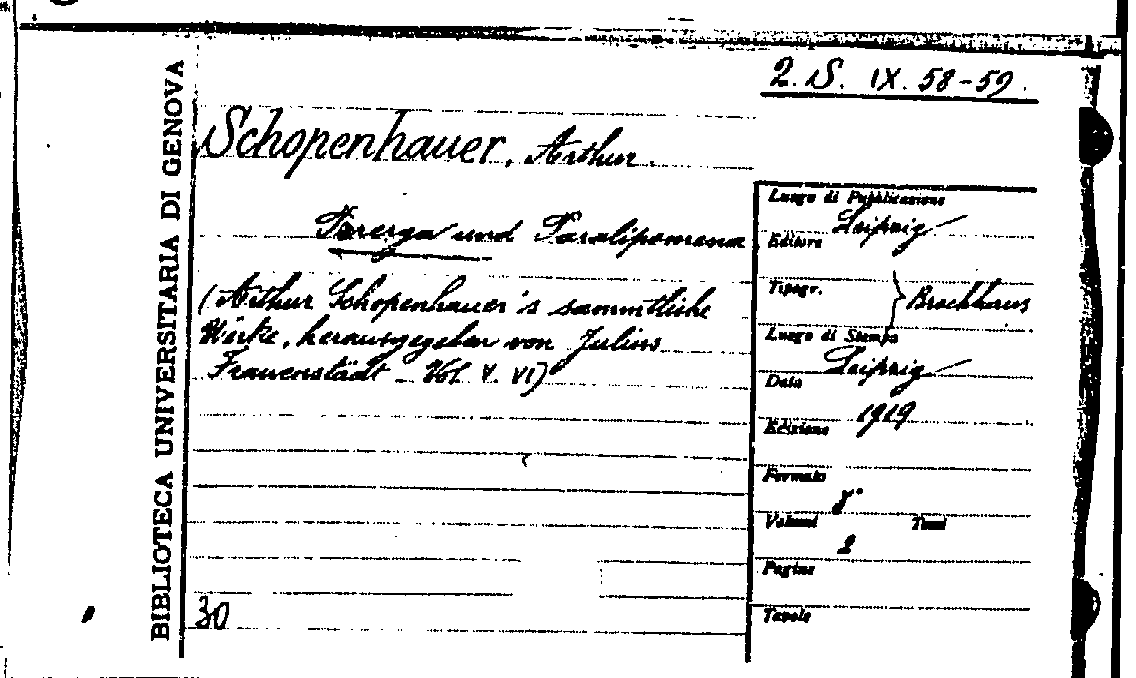 2. S. IX. 58-59.
BIBLIOTECA UNIVERSITARIA DI GENOVA
Schopenhauer, Arthur.
Parerga und Paralipomena
(Arthur Schopenhauer's sammtliche
Werke, herausgegeben von Julius
Frauenstädt - Vol. V. VI)
30
Luogo di Pubblicazione
Leipzig
Editore
Tipogr.
} Brockhaus
Luogo di Stampa
Leipzig
Data
1919
Edizione
Formato
8°
Volumi Tomi
2
Pagine
Tavole